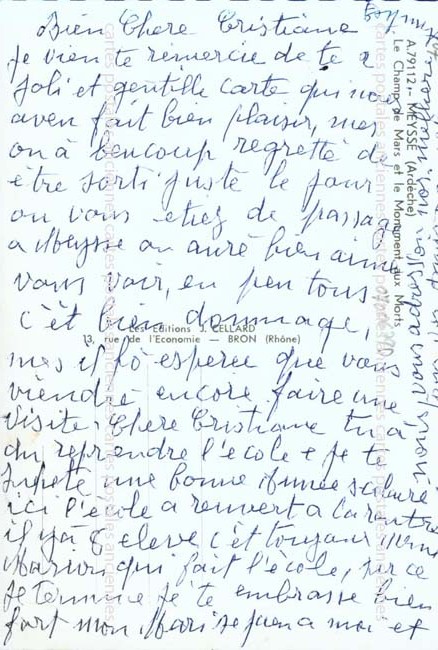 Bien Chere Cristiane
je vien te remercie de te 2
Joli et gentille carte qui nous
aven fait bien plaisir, mes
on à beucoup regretté de
être sorti juste le jour
ou vous etiez de passag
a Meysse on auré bien aimé
vous voir, en peu tous
c'ét bien dommage,
mes il fô esperee que vous
viendré encore faire une
visite. Chere Cristiane tu à
du reprendre l'école e je te
une bonne Année scolaire
ici l'école a reuvert a la rentre
il yà 8 eleve c'ét toujour
Marion qui fait l'école, sur ce
je termine je te embrasse bien
fort mon Mari se joien a moi et
A.79112 - MEYSSE (Ardèche)
Le Champ de Mars et le Monument aux Morts
Les Editions J. CELLARD
13, rue de l'Economie — BRON (Rhône)
nous vous adressons
cartes postales anciennes